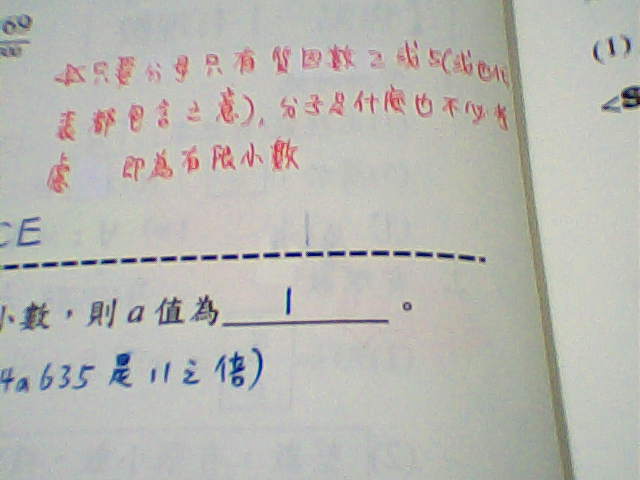 69
(1)
只要分母只有質因數2或5(或也代
表都包含之意),分子是什麼也不必考
慮 即為有限小數
CE
小數,則a值為 1 。
4a635是11之倍)